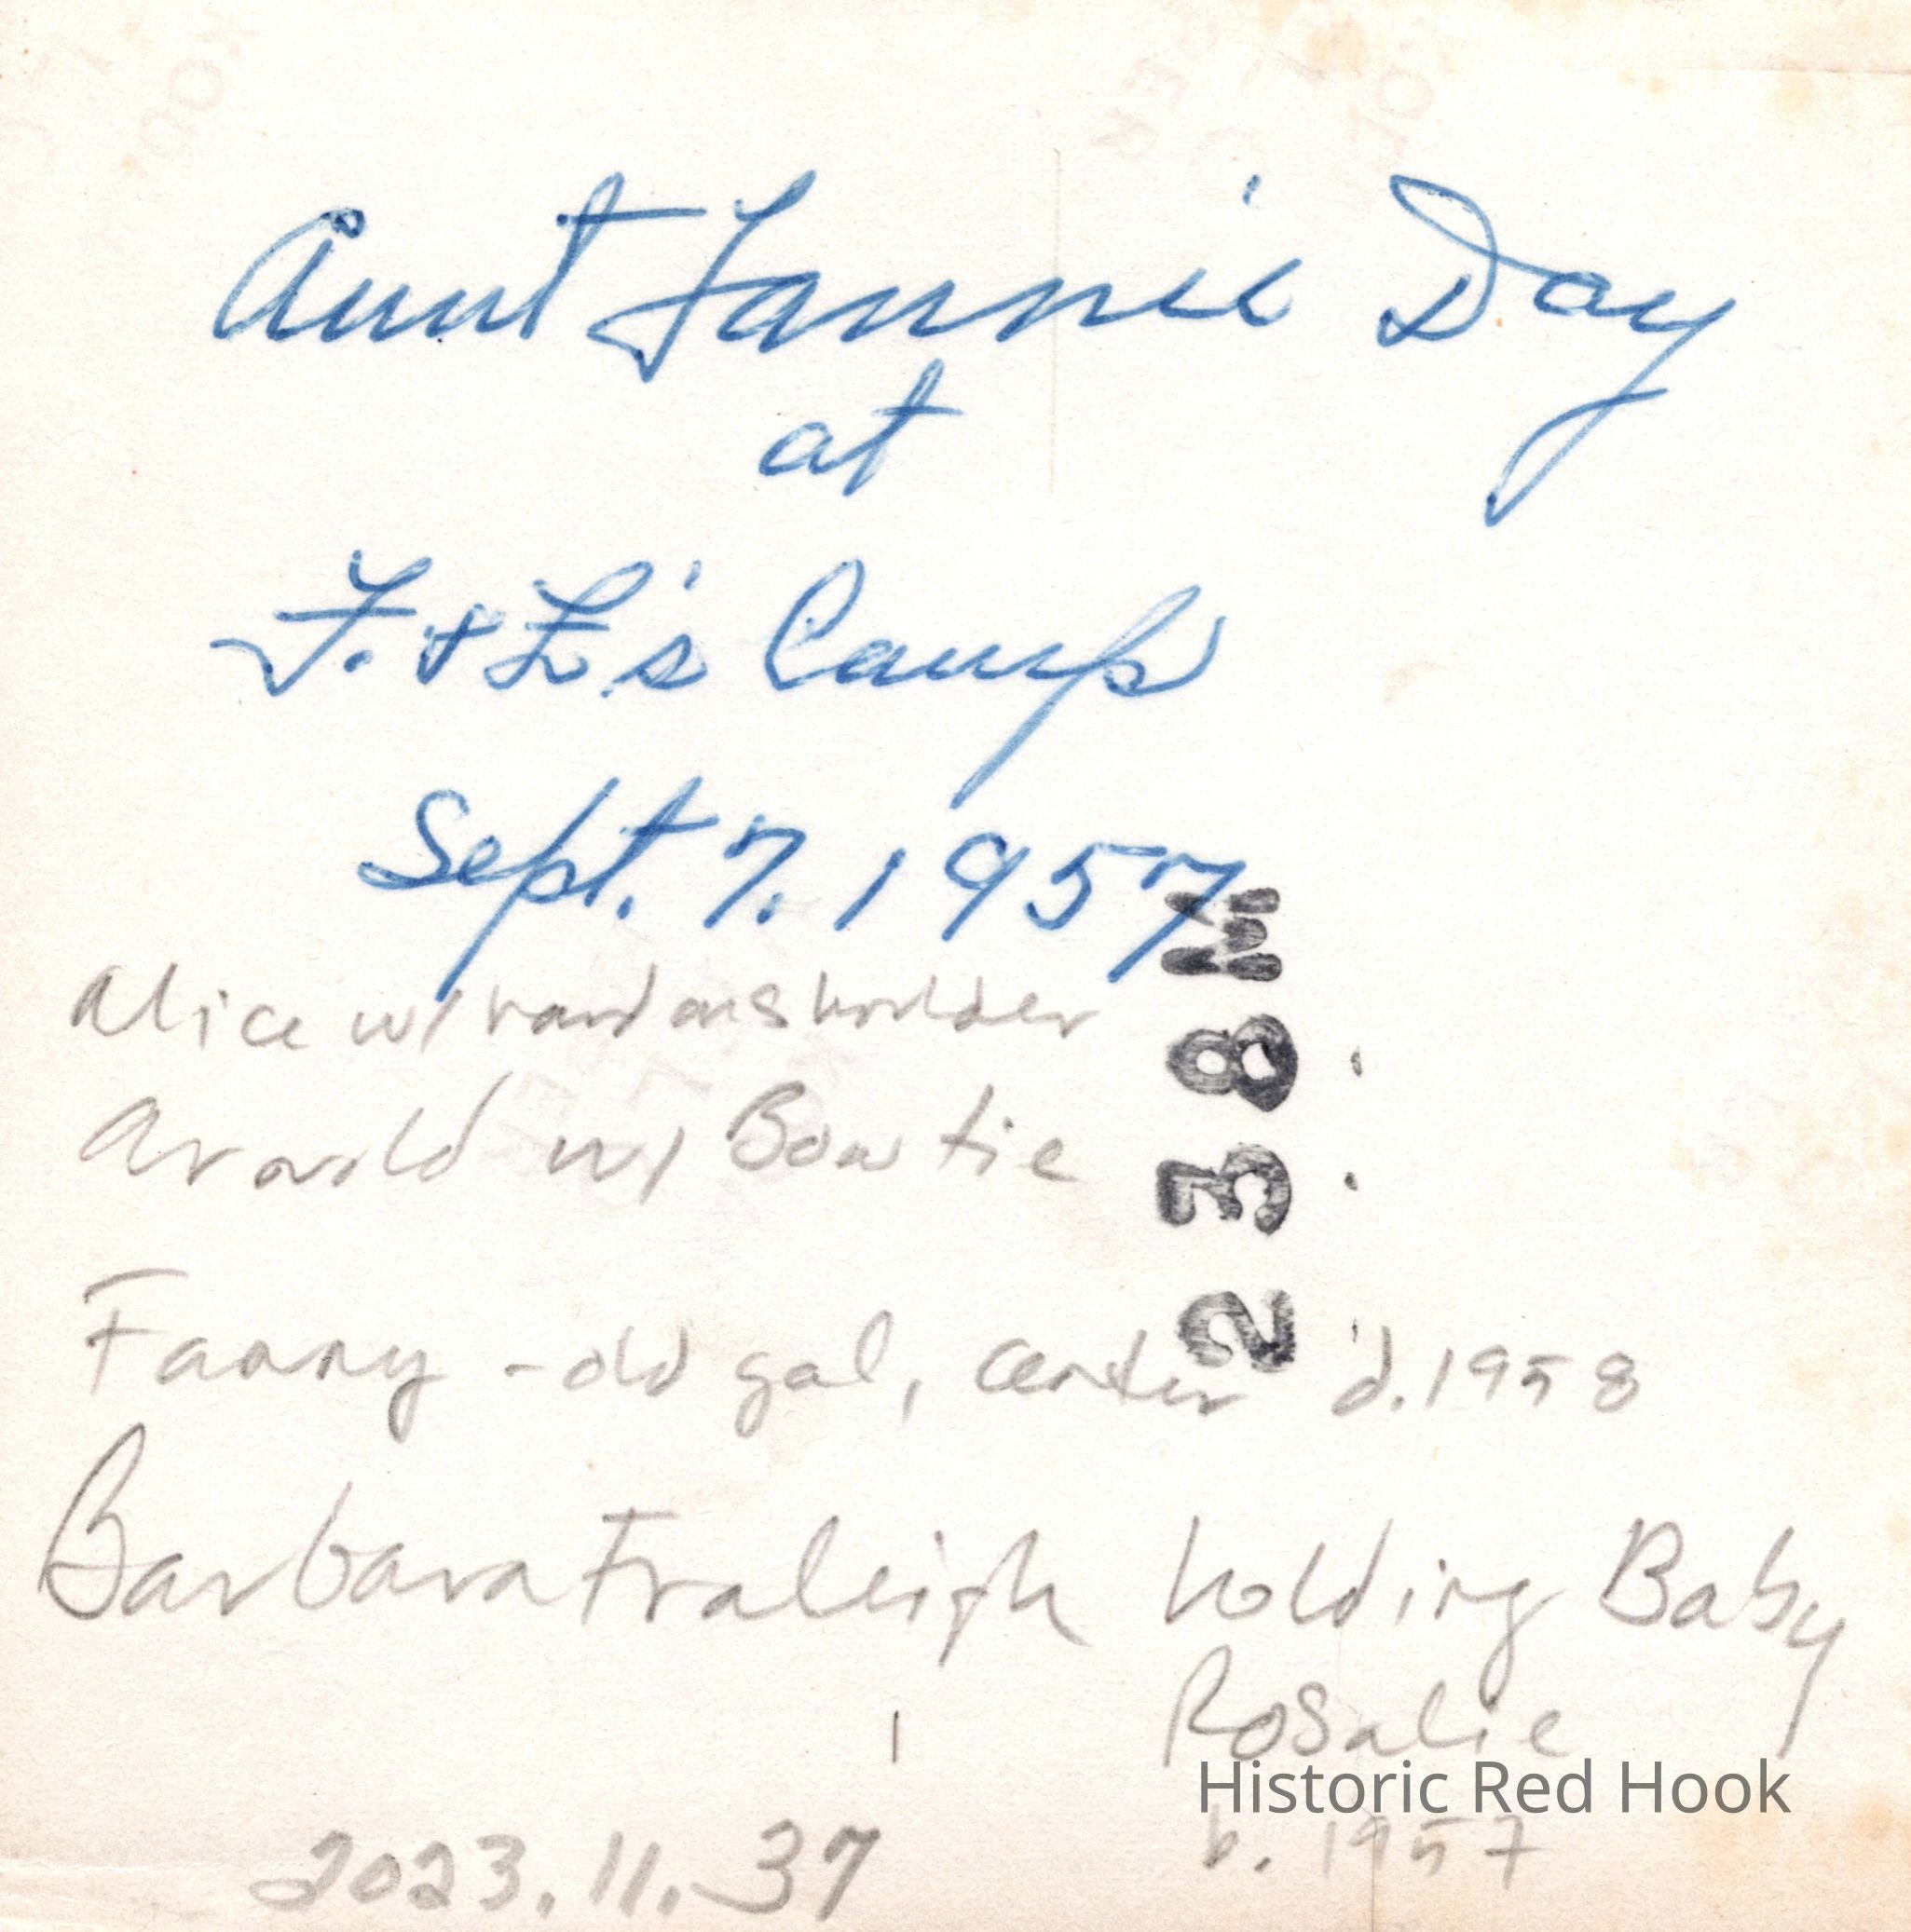 Aunt Fannie Day
at
F. + L's Camp
Sept. 7. 1957
Alice w/ hand on shoulder
Arnold w/ Bow tie
238M
Fanny - old gal, center d. 1958
Barbara Fraleigh holding Baby
Rosalie
Historic Red Hook
b. 1957
2023.11.37